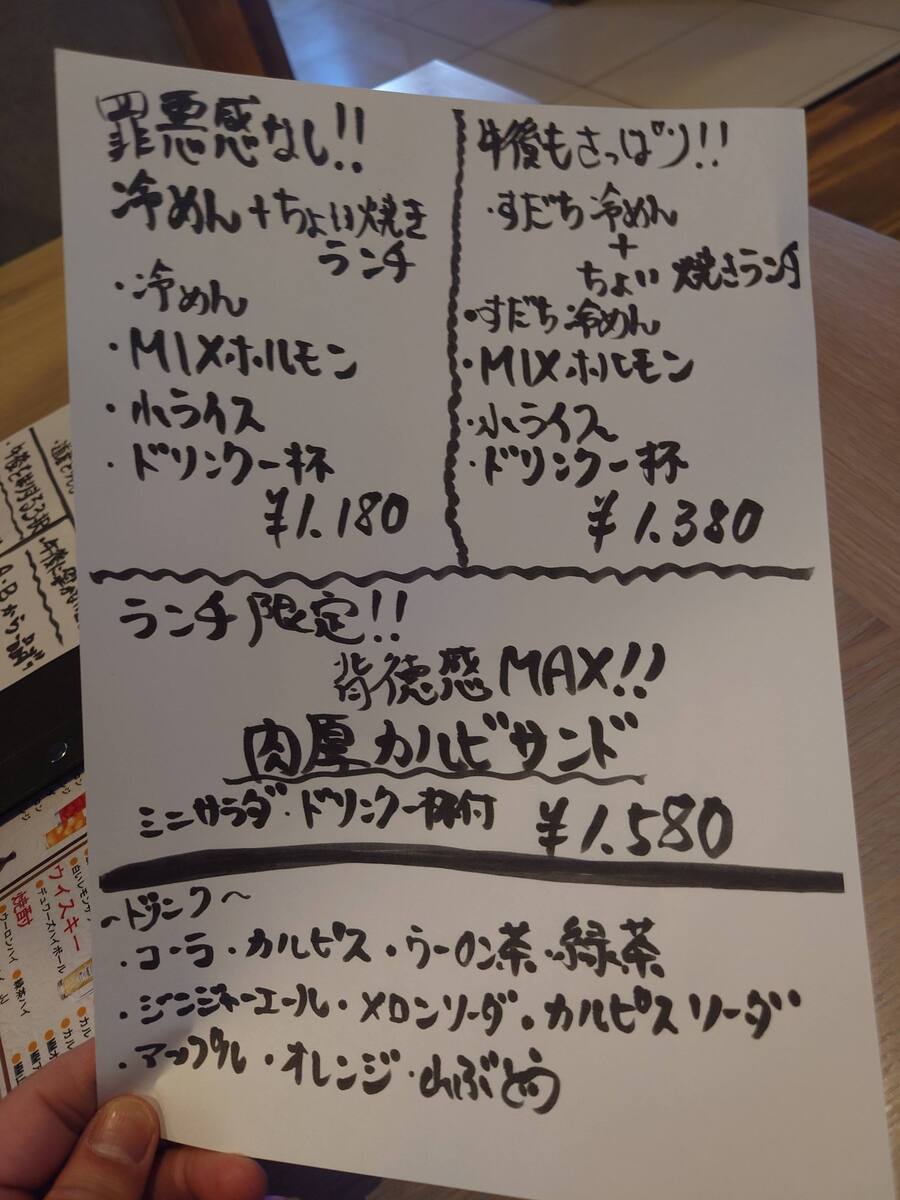 罪悪感なし!!
冷めん+ちょい焼き
ランチ
・冷めん
・MIXホルモン
・小ライス
・ドリンク一杯
¥1.180
午後もさっぱり!!
・すだち冷めん
+
ちょい焼きランチ
・すだち冷めん
・MIXホルモン
・小ライス
・ドリンク一杯
¥1.380
ランチ限定!!
背徳感MAX!!
肉厚カルビサンド
ミニサラダ・ドリンク一杯付 ¥1.580
~ドリンク~
・コーラ・カルピス・ウーロン茶・緑茶
・ジンジャーエール・メロンソーダ・カルピスソーダ
・アップル・オレンジ・山ぶどう
ウイスキー
デュワーズハイボール
焼酎
ウーロンハイ
緑茶ハイ